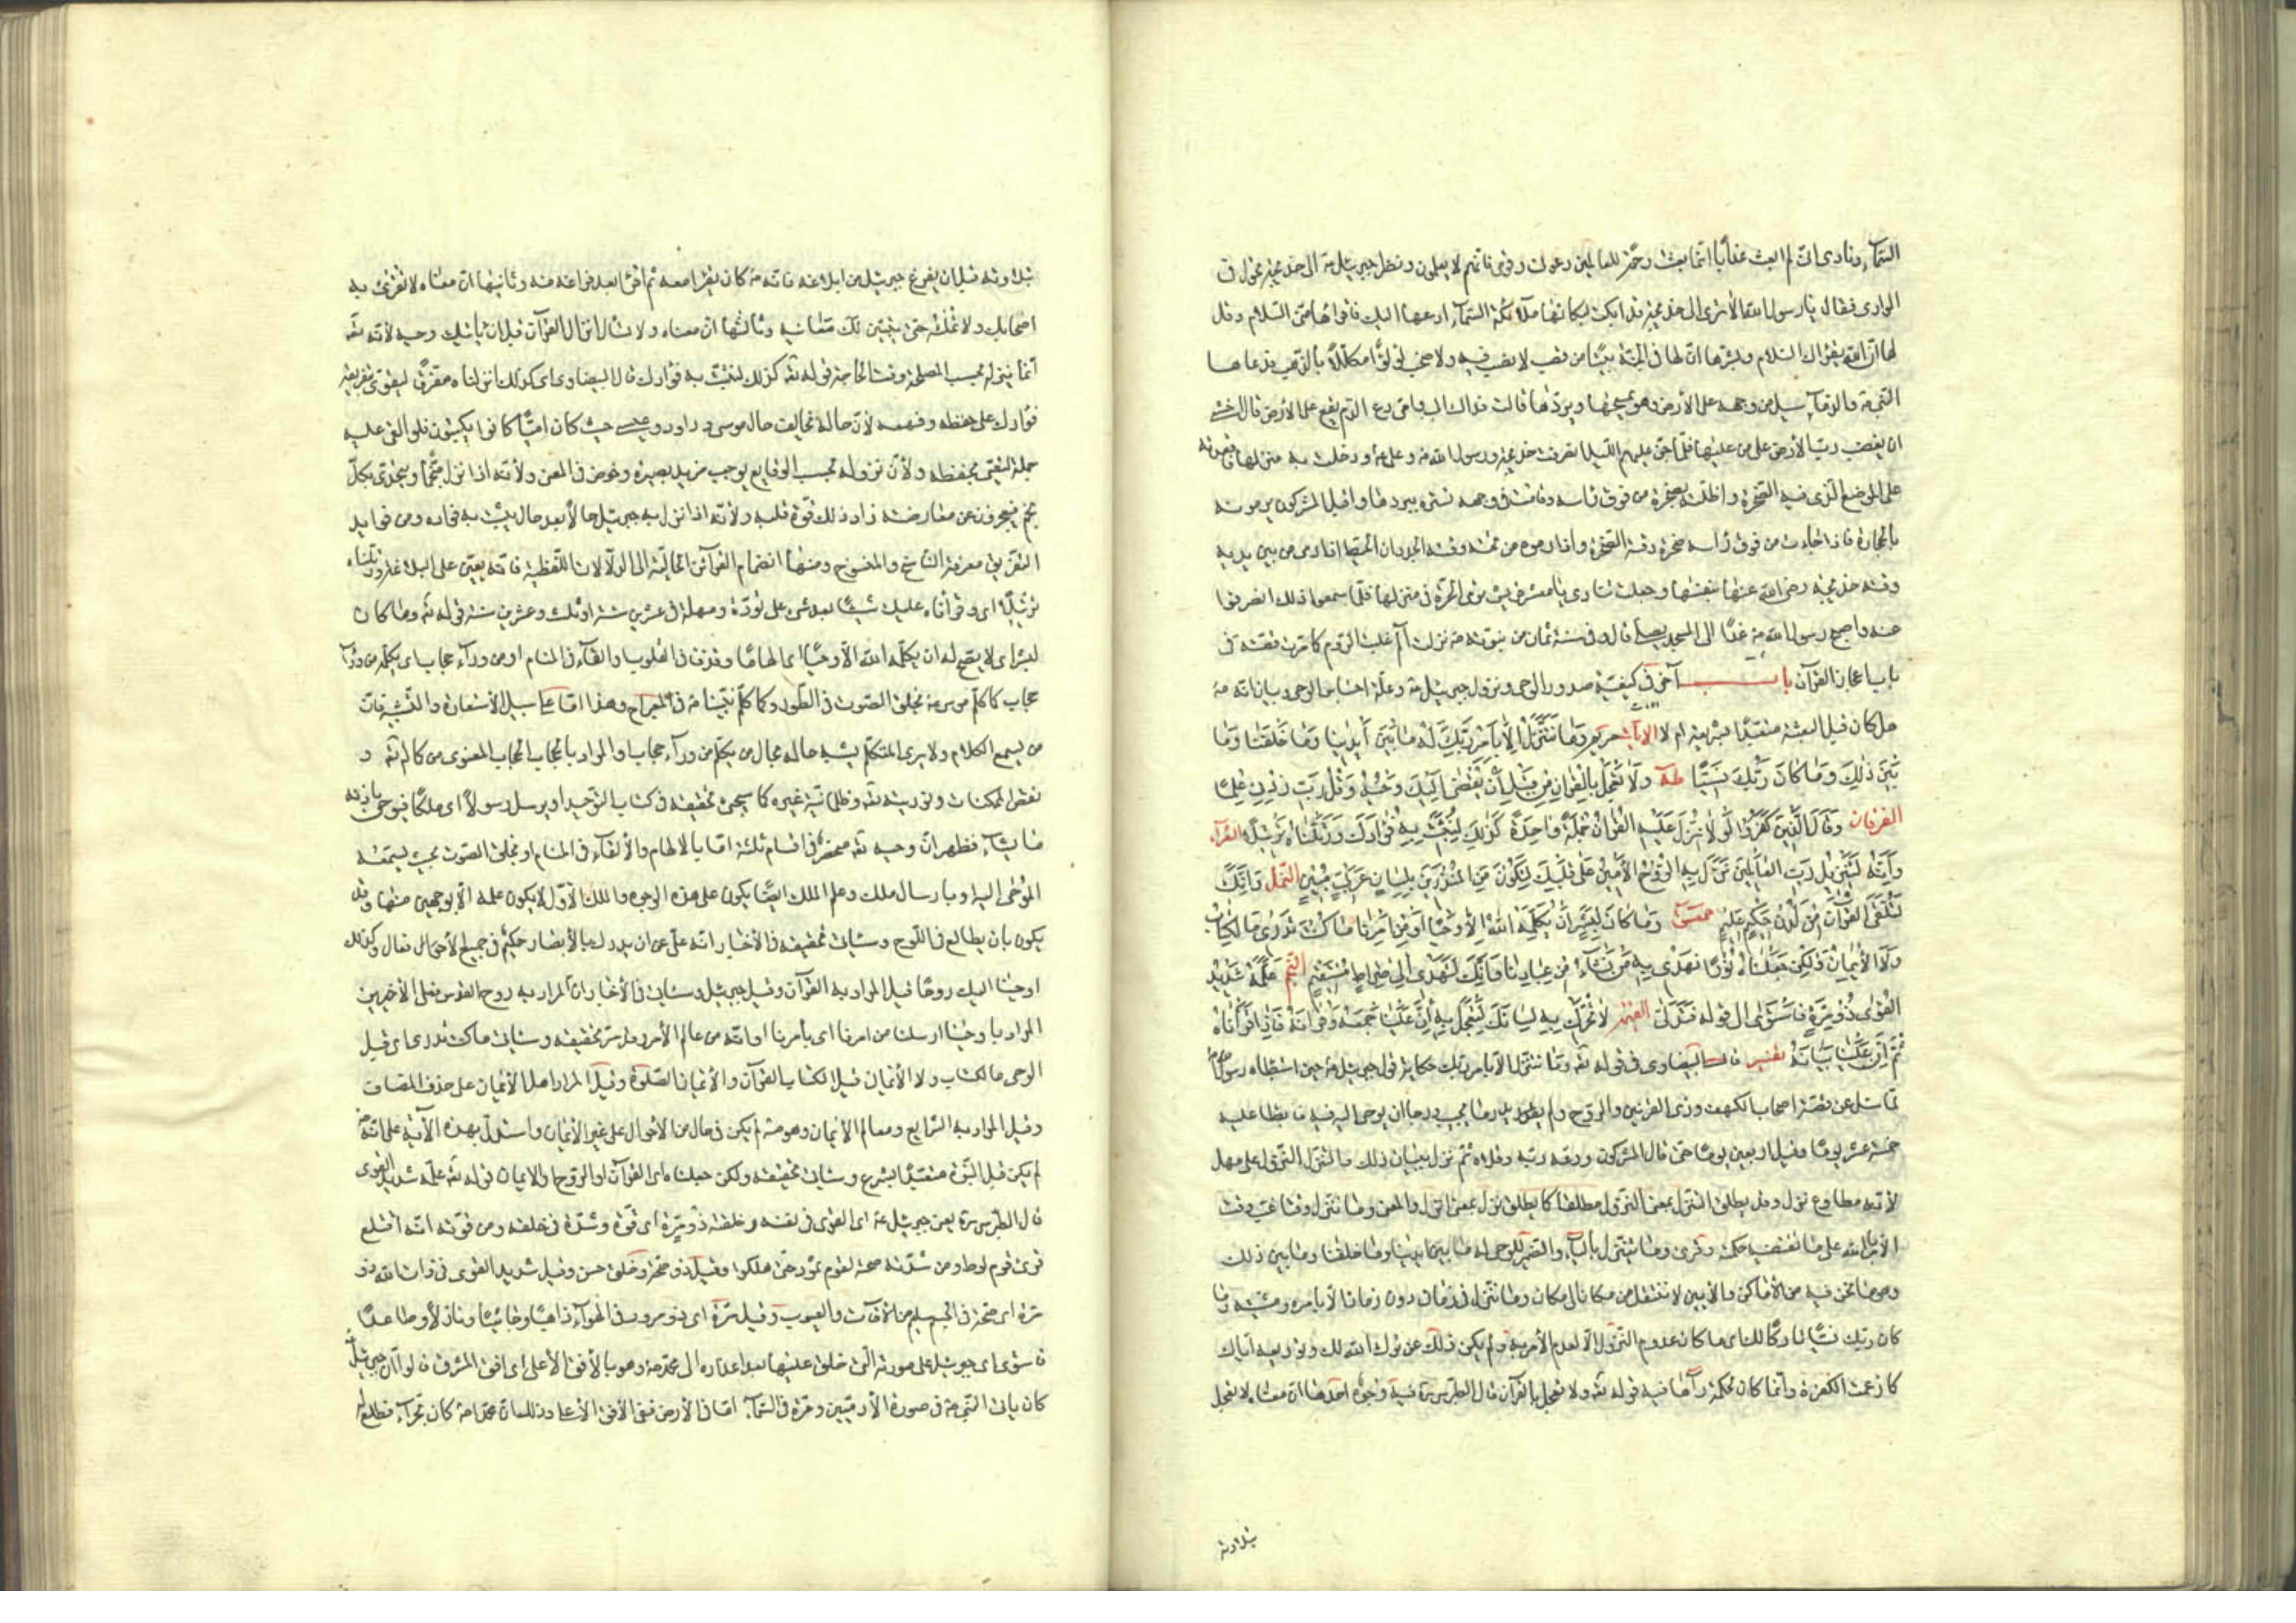 السّمآء ونادى انّى لم ابعث عذابًا انّما بعثت رحمة للعالمين دعونى وقومى فانّهم لا يعلمون ونظر جبرئيل ع الى خديجة تجول فى
الوادى فقال يا رسول الله الا ترى الى خديجة قد ابكت لبكائها ملآئكة السّمآء ادعها اليك فاقرأها منّى السّلام وقل
لها انّ الله يقرئك السّلام وبشّرها انّ لها فى الجنّة بيتًا من قصب لا نصب فيه ولا صخب لؤلؤًا مكلّلًا بالذّهب فدعاها
النّبى ص والدّمآء تسيل من وجهه على الأرض وهو يمسحها ويردّها قالت فداك ابى وامّى دع الدّم يقع على الأرض قال اخشى
ان يغضب ربّ الأرض على من عليها فلمّا جنّ عليهم اللّيل انصرفت خديجة ورسول الله ص وعلى ع ودخلت به منزلها فاقعدته
على الموضع الّذى فيه الصّخرة واظلّته بصخرة من فوق رأسه وقامت فى وجهه تستره ببردها واقبل المشركون يرمونه
بالحجارة فاذا جاءت من فوق رأسه صخرة وقته الصّخرة واذا رموه من تحته وقته الجدران الحيط واذا رمى من بين يديه
وقته خديجة رضى الله عنها بنفسها وجعلت تنادى يا معشر قريش ترمى الحرّة فى منزلها فلمّا سمعوا ذلك انصرفوا
عنه واصبح رسول الله ص وغدا الى المسجد يصلّى قال وفى سنة ثمان من نبوّته ص نزلت آلم غلبت الرّوم كما مرّت قصّته فى
باب اعجاز القرآن باب آخر فى كيفيّة صدور الوحى ونزول جبرئيل ع وعلّة احتباس الوحى وبيان انّه ص
هل كان قبل البعثة متعبّدًا بشريعة ام لا الآيات مريم وَمَا نَتَنَزَّلُ اِلّا بِاَمْرِ رَبِّكَ لَهُ مَا بَيْنَ اَيْدِينَا وَمَا خَلْفَنَا وَمَا
بَيْنَ ذٰلِكَ وَمَا كَانَ رَبُّكَ نَسِيًّا طه وَلَا تَعْجَلْ بِالْقُرْانِ مِنْ قَبْلِ اَنْ يُقْضٰى اِلَيْكَ وَحْيُهُ وَقُلْ رَبِّ زِدْنِى عِلْمًا
الفرقان وَقَالَ الَّذِينَ كَفَرُوا لَوْ لَا نُزِّلَ عَلَيْهِ الْقُرْانُ جُمْلَةً وَاحِدَةً كَذٰلِكَ لِنُثَبِّتَ بِهِ فُؤَادَكَ وَرَتَّلْنَاهُ تَرْتِيلًا الشعرآء
وَاِنَّهُ لَتَنْزِيلُ رَبِّ الْعَالَمِينَ نَزَلَ بِهِ الرُّوحُ الْاَمِينُ عَلٰى قَلْبِكَ لِتَكُونَ مِنَ الْمُنْذِرِينَ بِلِسَانٍ عَرَبِىٍّ مُبِينٍ النمل وَاِنَّكَ
لَتُلَقَّى الْقُرْآنَ مِنْ لَدُنْ حَكِيمٍ عَلِيمٍ حمعسق وَمَا كَانَ لِبَشَرٍ اَنْ يُكَلِّمَهُ اللهُ اِلَّا وَحْيًا اَوْ مِنْ امرنا مَا كُنْتَ تَدْرِى مَا الْكِتَابُ
وَلَا الْاِيمَانُ وَلٰكِنْ جَعَلْنَاهُ نُورًا نَهْدِى بِهِ مَنْ نَشَآءُ مِنْ عِبَادِنَا وَاِنَّكَ لَتَهْدِى اِلٰى صِرَاطٍ مُسْتَقِيمٍ النجم عَلَّمَهُ شَدِيدُ
الْقُوٰى ذُو مِرَّةٍ فَاسْتَوٰى الى قوله فَتَدَلّٰى القيٰمة لَا تُحَرِّكْ بِهِ لِسَانَكَ لِتَعْجَلَ بِهِ اِنَّ عَلَيْنَا جَمْعَهُ وَقُرْانَهُ فَاِذَا قَرَأْنَاهُ
ثُمَّ اِنَّ عَلَيْنَا بَيَانَهُ تفسير قال البيضاوى فى قوله تعٰ وما نتنزّل الّا بامر ربّك حكاية قول جبرئيل ع حين استبطأه رسول الله ص
لمّا سئل عن قصّة اصحاب الكهف وذى القرنين والرّوح ولم يدر ما يجيب ورجا ان يوحى اليه فيه فابطأ عليه
خمسة عشر يومًا وقيل اربعين يومًا حتّى قال المشركون ودّعه ربّه وقلاه ثمّ نزل ببيان ذلك والتنزّل النّزول على مهل
لأنّه مطاوع نزّل وقد يطلق التنزّل بمعنى النّزول مطلقًا كما يطلق نزّل بمعنى انزل والمعنى وما نتنزّل وقتا غبّ وقت
الّا بامر الله على ما تقتضيه حكمته وقرئ وما يتنزّل باليآء والضّمير للوحى له ما بين ايدينا وما خلفنا وما بين ذلك
وهو ما نحن فيه من الأماكن والأحايين لا ننتقل من مكان الى مكان وما نتنزّل فى زمان دون زمان الّا بامره ومشيّته وما
كان ربّك نسيًّا تاركًا لك اى ما كان عدم النّزول الّا لعدم الأمر به ولم يكن ذلك عن ترك الله لك وتوديعه ايّاك
كما زعمت الكفرة وانّما كان لحكمة رآها فيه قوله تعٰ ولا تعجل بالقرآن قال الطّبرسى ره فيه وجوه احدها انّ معناه لا تعجل
بتلاوته
بتلاوته قبل ان يفرغ جبرئيل من ابلاغه فانّه ص كان يقرأ معه ثم اقرأ بعد فراغه منه وثانيها انّ معناه لا تقرئ به
اصحابك ولا تمله حتى يتبيّن لك معانيه وثالثها انّ معناه ولا تسأل انزال القرآن قبل ان يأتيك وحيه لأنّه تعٰ
انّما ينزله بحسب المصلحة وقت الحاجة قوله تعٰ كذلك لنثبّت به فؤادك قال البيضاوى اى كذلك انزلناه مفرّقًا لنقوّى بتفريقه
فؤادك على حفظه وفهمه لأنّ حاله يخالف حال موسى وداود وعيسى حيث كان امّيًّا وكانوا يكتبون فلو القى عليه
جملة لتعيّى بحفظه ولأنّ نزوله بحسب الوقايع يوجب مزيد بصيرة وخوض فى المعنى ولأنّه اذا نزل منجّمًا ويتحدّى بكلّ
نجم فيعجزون عن معارضته زاد ذلك قوّة قلبه ولأنّه اذا نزل به جبرئيل حالًا بعد حال يثبت به فؤاده ومن فوايد
التّفريق معرفة النّاسخ والمنسوخ ومنها انضمام القرآئن الحاليّة الى الدّلالات اللّفظيّة فانّه يعين على البلاغة ورتّلناه
ترتيلًا اى وقرأناه عليك شيئًا بعد شئ على تؤدة ومهلة فى عشرين سنة او ثلث وعشرين سنة قوله تعٰ وما كان
لبشر اى لا يصحّ له ان يكلّمه الله الّا وحيًا اى الهامًا وقذفًا فى القلوب او القآء فى المنام او من ورآء حجاب اى يكلّمه من ورآء
حجاب كما كلّم موسى ع بخلق الصّوت فى الطّور وكما كلّم نبيّنا ص فى المعراج وهذا امّا على سبيل الأستعارة والتّشبيه فانّ
من يسمع الكلام ولا يرى المتكلّم يشبه حاله بحال من يكلّم من ورآء حجاب او المراد بالحجاب الحجاب المعنوى من كماله تعٰ و
نقص الممكنات ونوريّته تعٰ وظلمانيّة غيره كما سيجئ تحقيقه فى كتاب التّوحيد او يرسل رسولًا اى ملكًا فيوحى باذنه
ما يشآء فظهر انّ وحيه تعٰ منحصر فى اقسام ثلثة امّا بالالهام والألقآء فى المنام او بخلق الصّوت بحيث يسمعه
الموحٰى اليه او بارسال ملك وعلم الملك ايضًا يكون على هذه الوجوه والملك الأوّل لا يكون علمه الّا بوجهين منها وقد
يكون بان يطالع فى اللّوح وسيأتى تحقيقه فى الأخبار انّه علىّ عن ان يدرك بالأبصار حكيم فى جميع الأفعال وكذلك
اوحينا اليك روحًا قيل المراد به القرآن وقيل جبرئيل وسيأتى فى الأخبار انّ المراد به روح القدس فعلى الأخيرين
المراد باوحينا ارسلنا من امرنا اى بأمرنا او انّه من عالم الأمر وقد مرّ تحقيقه وسيأتى ما كنت تدرى اى قبل
الوحى ما الكتاب ولا الأيمان قيل الكتاب القرآن والأيمان الصّلوة وقيل المراد اهل الأيمان على حذف المضاف
وقيل المراد به الشّرايع ومعالم الأيمان وهو ص لم يكن فى حال من الأحوال على غير الأيمان واستدلّ بهذه الآية على انّه ص
لم يكن قبل النّبوّة متعبّدًا بشرع وسيأتى تحقيقه ولكن جعلناه اى القرآن او الرّوح او الايمان قوله تعٰ علّمه شديد القوى
قال الطّبرسى ره يعنى جبرئيل ع اى القوى فى نفسه وخلقته ذو مرّة اى قوّة وشدّة فى خلقه ومن قوّته انّه اقتلع
قرى قوم لوط ومن شدّته صيحته لقوم ثمود حتّى هلكوا وقيل ذو صحّة وخلق حسن وقيل شديد القوى فى ذات الله ذو
مرّة اى صحّة فى الجسم سليم من الآفات والعيوب وقيل مرّة اى ذو مرور فى الهوآء ذاهبًا وجائيًا ونازلًا وصاعدًا
فاستوى اى جبرئيل على صورته الّتى خلق عليها بعد انحداره الى محمّد ص وهو بالأفق الأعلى اى افق المشرق قالوا انّ جبرئيل ع
كان يأتى النّبى ص فى صورة الآدميّين ومرّة فى السّمآء امّا فى الأرض ففى الأفق الأعلى وذلك انّ محمّدا ص كان بحرآء فطلع له